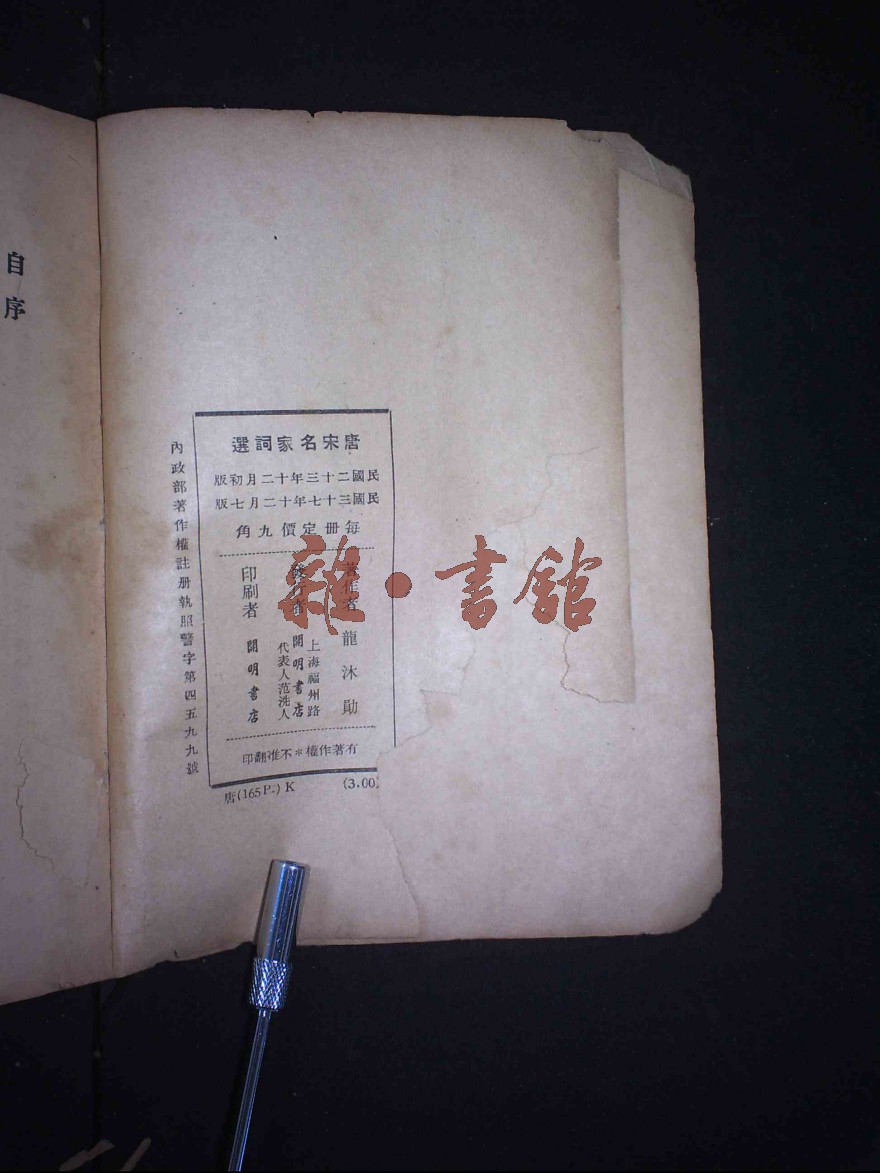 唐宋名家詞選
民國二十三年十二月初版
民國三十七年十二月七版
每冊定價九角
著作者 龍沐勛
發行者 上海福州路 開明書店 代表人范洗人
印刷者 開明書店
有著作權＊不准翻印
(3.00)
唐(165P.) K
內政部著作權註册執照警字第四五九九號
自序
雜·書館